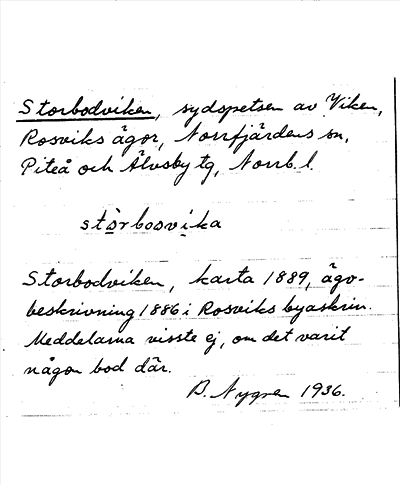 Storbodviken, sydspetsen av Viken,
Rosviks ägor, Norrfjärdens sn,
Piteå och Älvsby tg, Norrb. l.
stòrbosvika
Storbodviken, karta 1889, ägo-
beskrivning 1886 i Rosviks byaskrin.
Meddelarna visste ej, om det varit
någon bod där.
B. Nygren 1936.